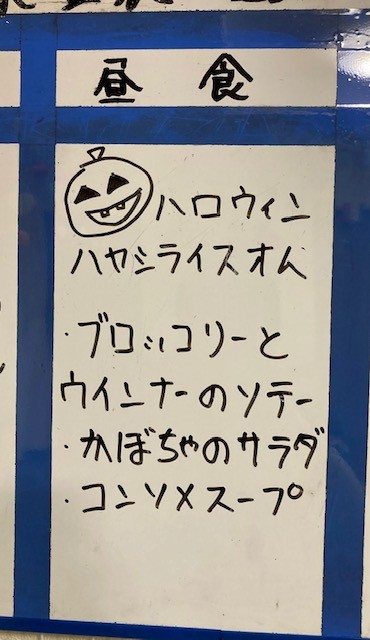 昼食
ハロウィン
ハヤシライスオム
・ブロッコリーと
ウインナーのソテー
・かぼちゃのサラダ
・コンソメスープ